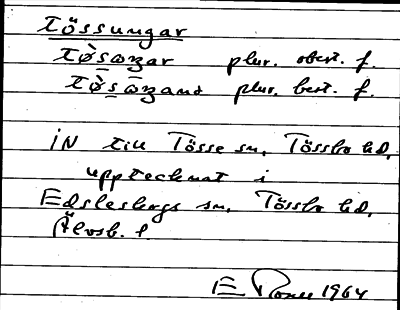 Tössungar
tø̀sɷŋar plur. obest. f.
tø̀sɷŋană plur. best. f.
IN till Tösse sn, Tössbo hd,
upptecknat i
Edsleskogs sn, Tössbo hd,
Älvsb. l.
1964